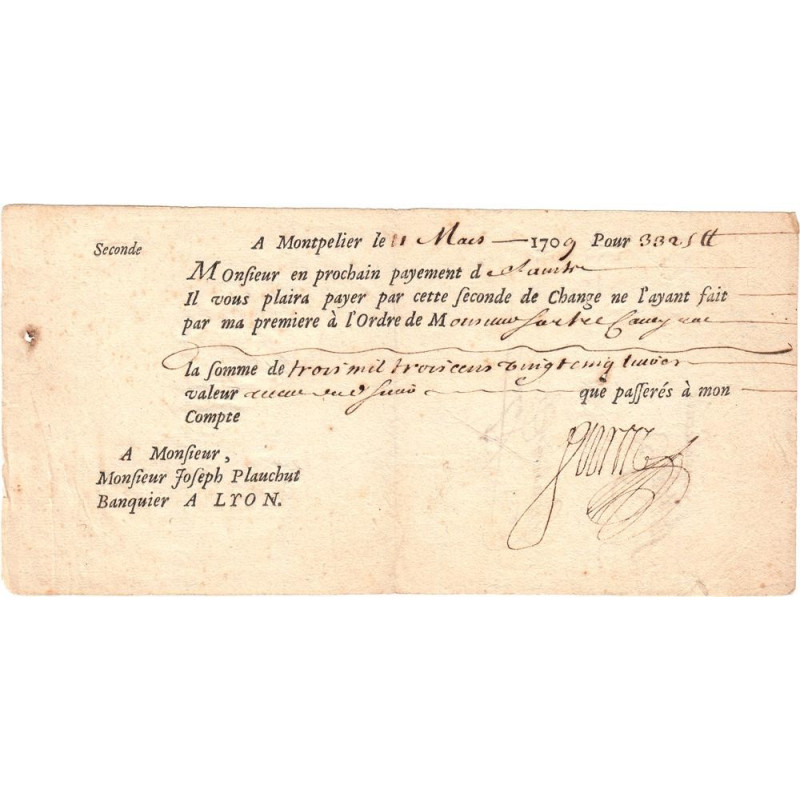 Seconde A Montpelier le 11 Mars 1709 Pour 3325 ₶
MOnsieur en prochain payement de
Il vous plaira payer par cette ſeconde de Change ne l'ayant fait
par ma premiere à l'Ordre de Monsieur
la ſomme de trois mil trois cens vingt cinq livres
valeur que paſſerés à mon
Compte
A Monſieur,
Monſieur Joſeph Plauchut
Banquier A LYON.